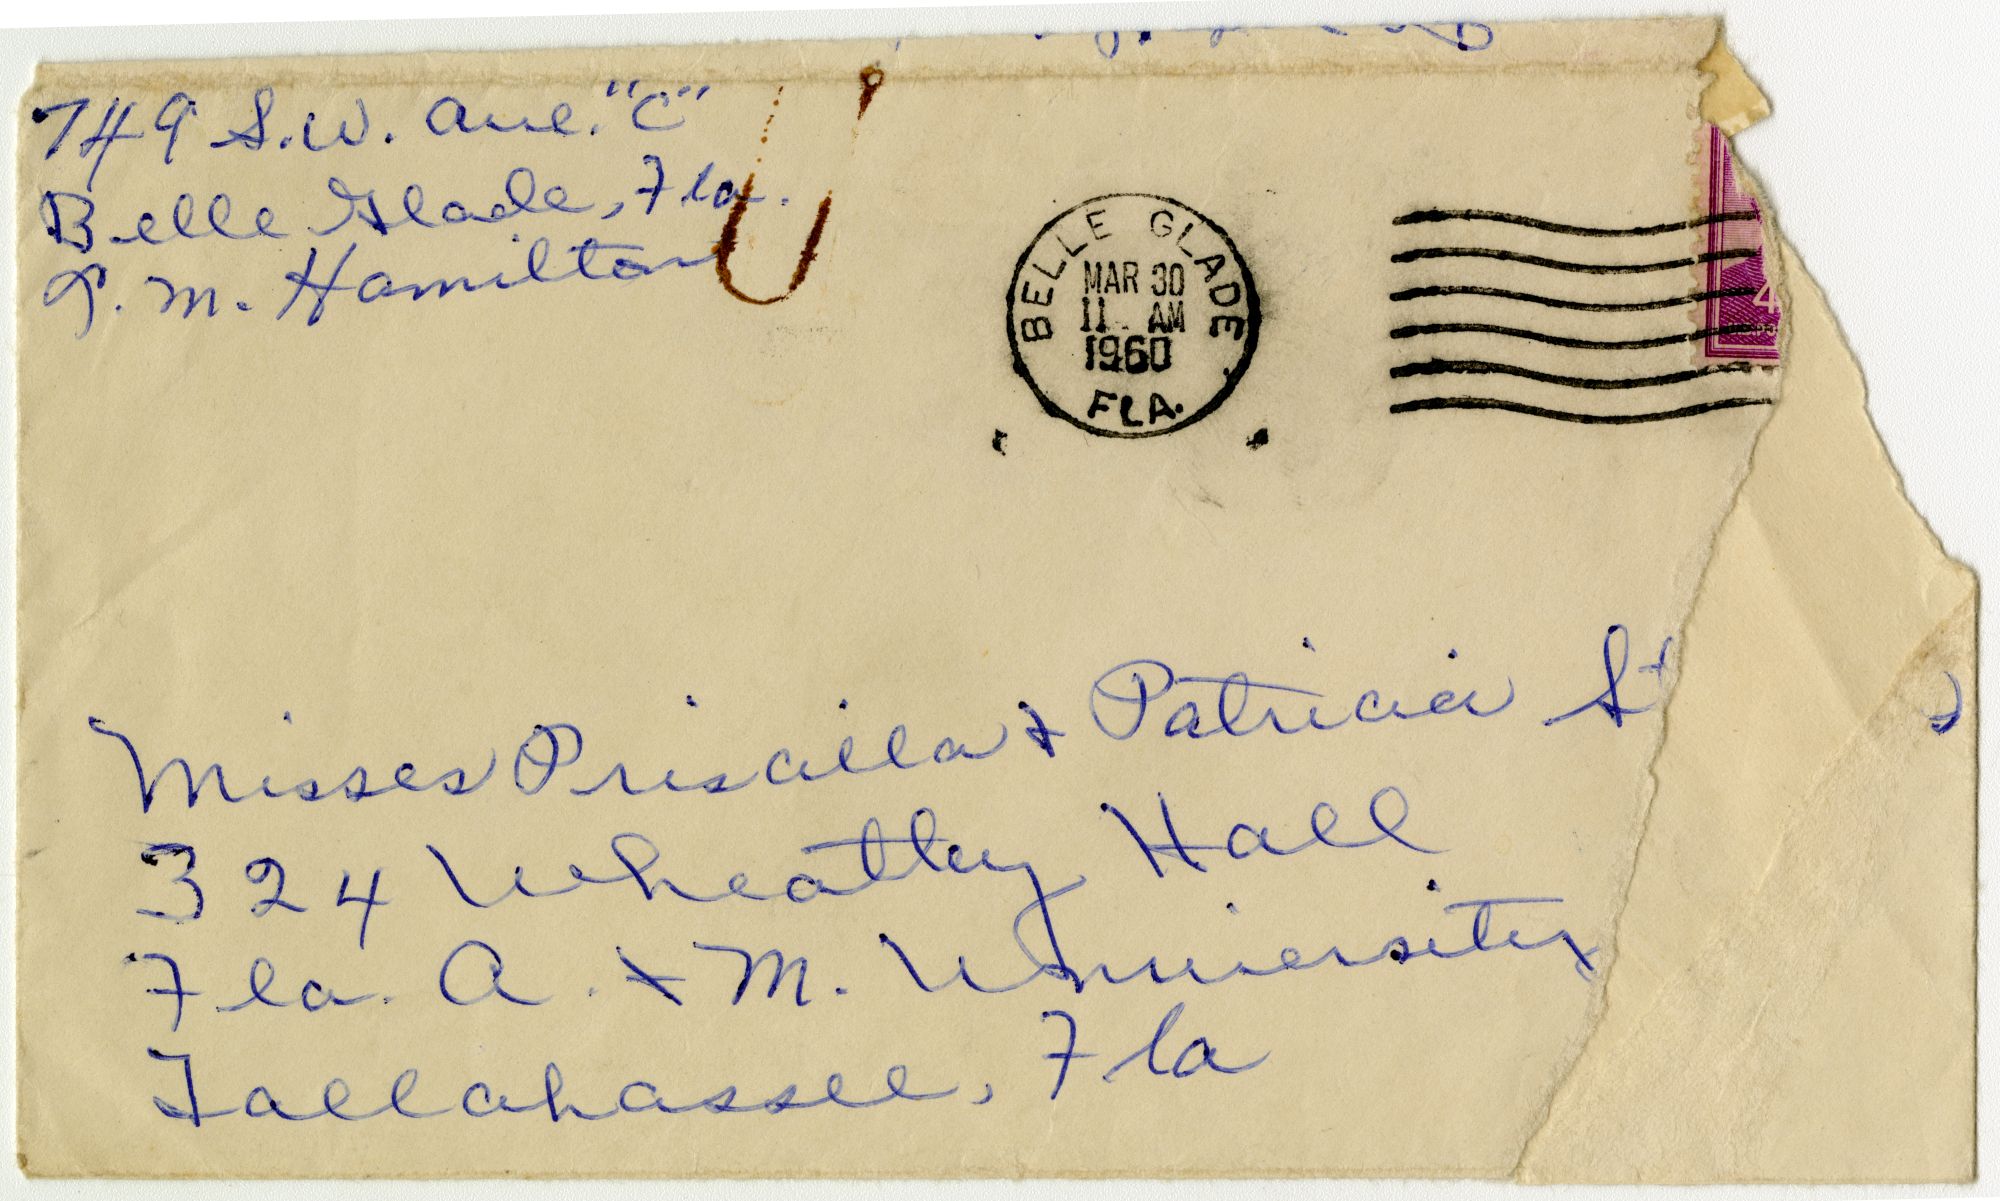 749 S.W. Ave. "C"
Belle Glade, Fla.
P. M. Hamilton
BELLE GLADE
MAR 30
11 AM
1960
FLA.
4
Misses Priscilla & Patricia St
324 Wheatley Hall
Fla. A. & M. University
Tallahassee, Fla